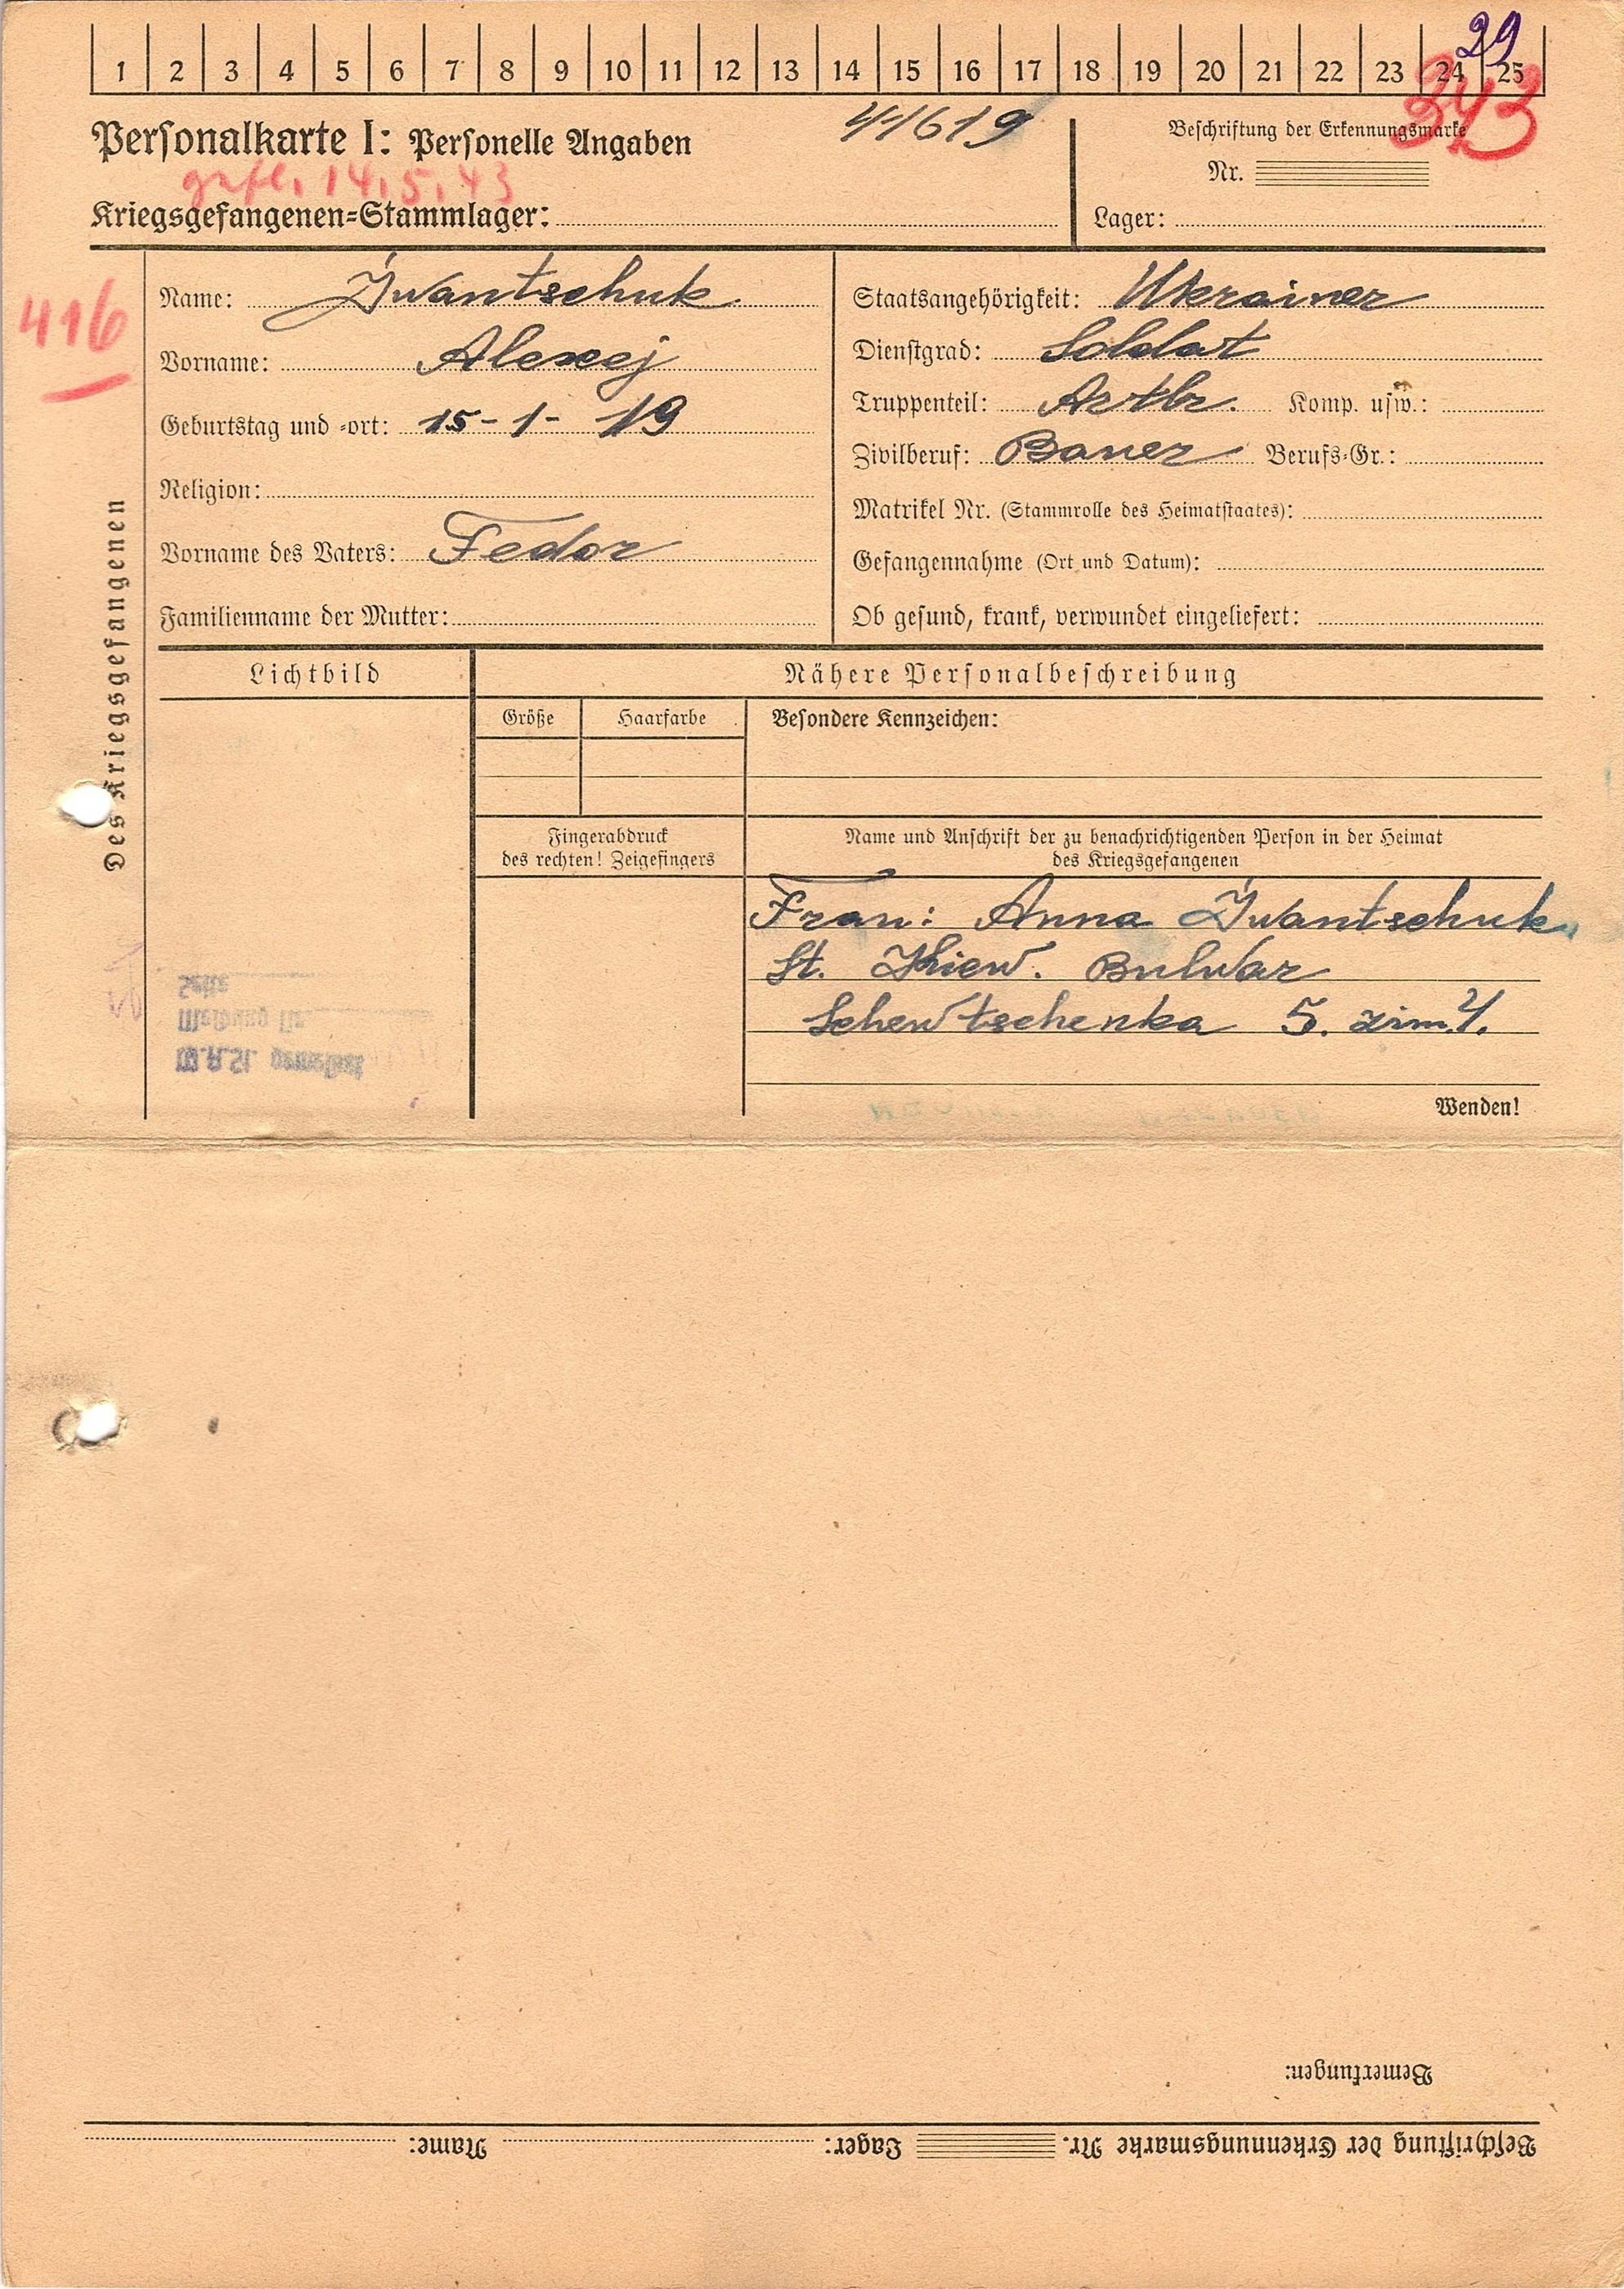 29
1 2 3 4 5 6 7 8 9 10 11 12 13 14 15 16 17 18 19 20 21 22 23 24 25
343
Personalkarte I: Personelle Angaben
41619
Beschriftung der Erkennungsmarke
Nr.
14.5.43
Kriegsgefangenen=Stammlager:
Lager:
416
Des Kriegsgefangenen
Name: Iwantschuk
Vorname: Alexej
Geburtstag und =ort: 15-1-19
Religion:
Vorname des Vaters: Fedor
Familienname der Mutter:
Staatsangehörigkeit: Ukrainer
Dienstgrad: Soldat
Truppenteil: Artbr. Komp. usw.:
Zivilberuf: Bauer Berufs=Gr.:
Matrikel Nr. (Stammrolle des Heimatstaates):
Gefangennahme (Ort und Datum):
Ob gesund, krank, verwundet eingeliefert:
Lichtbild
Nähere Personalbeschreibung
Größe Haarfarbe
Besondere Kennzeichen:
Fingerabdruck
des rechten! Zeigefingers
Name und Anschrift der zu benachrichtigenden Person in der Heimat
des Kriegsgefangenen
Frau: Anna Iwantschuk
St. Khiew. Bulwar
Schewtschenka 5. zim. 4.
Wenden!
Bemerkungen:
Beschriftung der Erkennungsmarke Nr. Lager: Name: